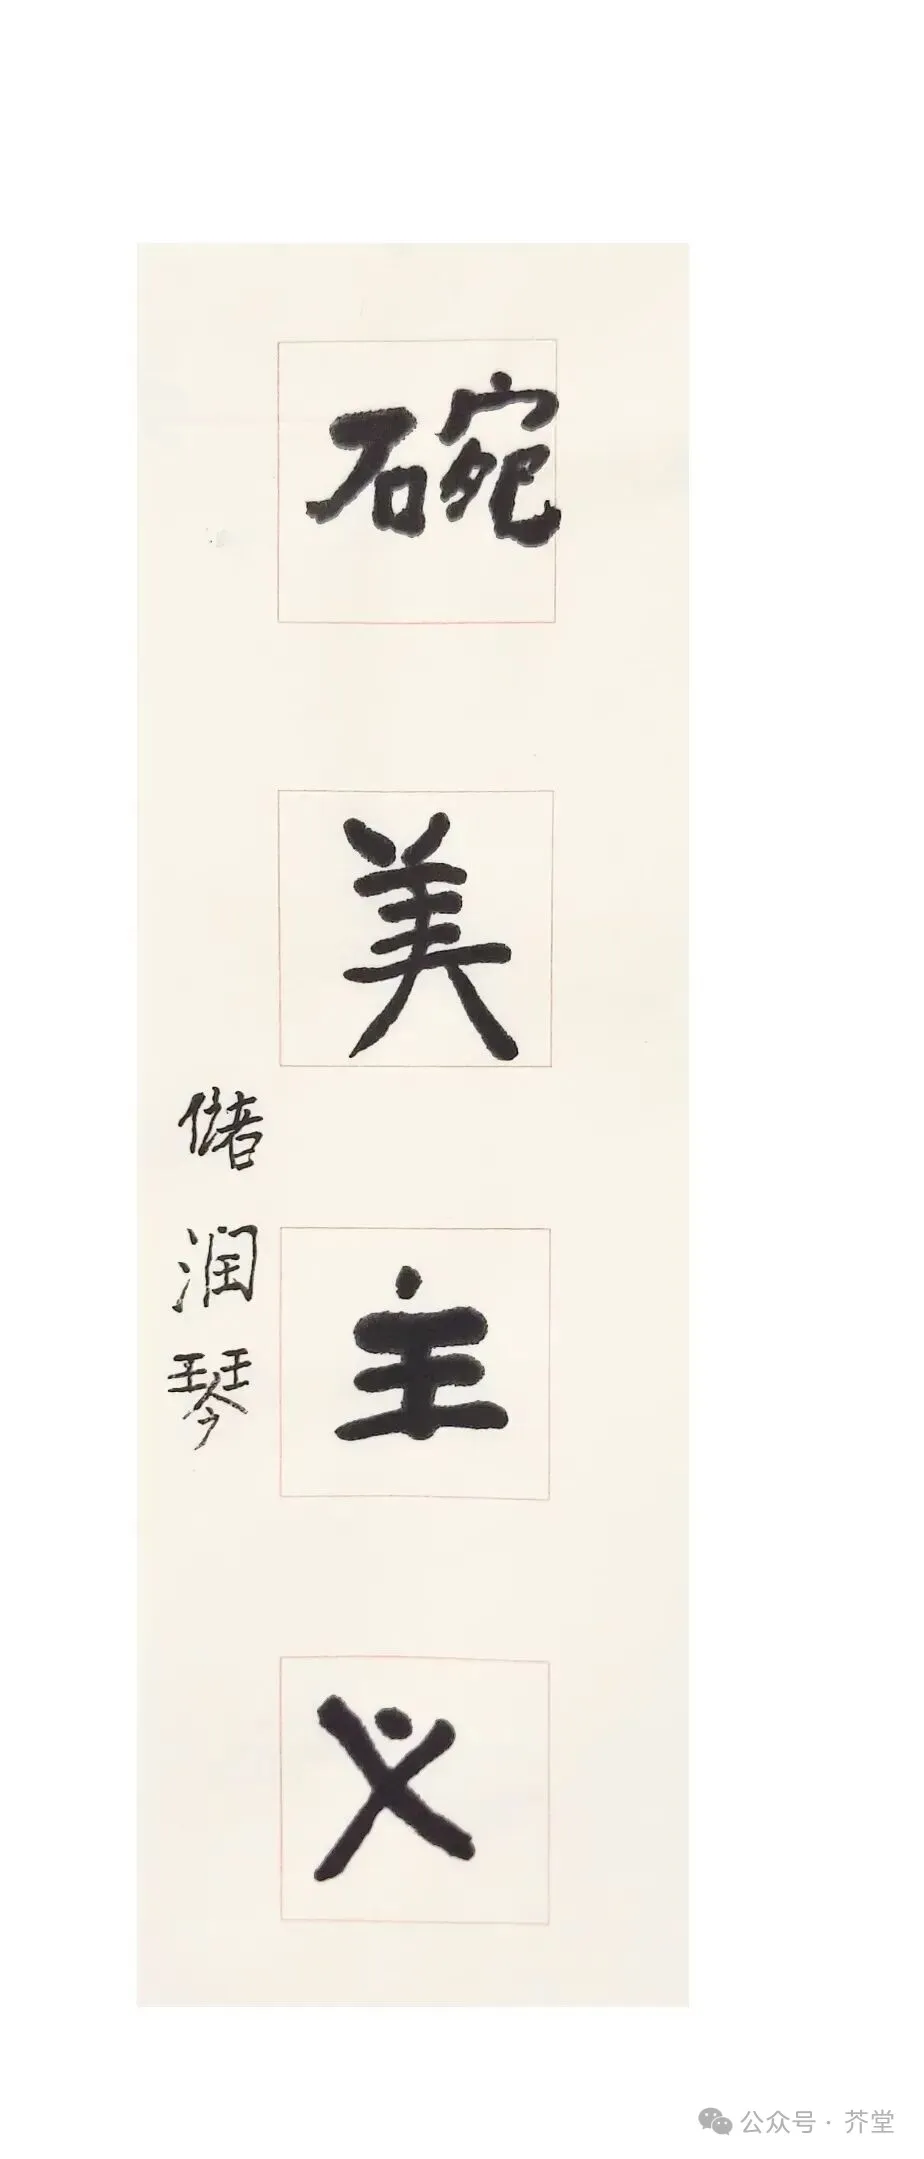 碗美主义
储润琴
公众号·芥堂